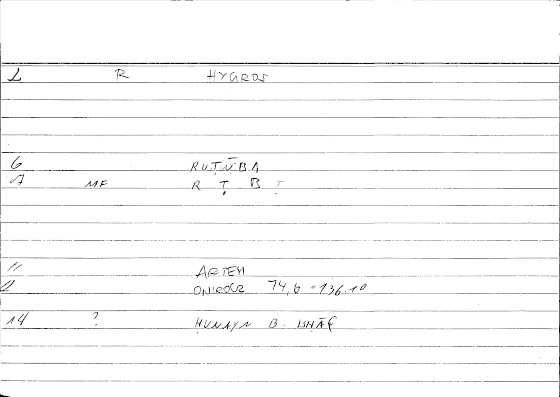 L R HYGROS
6 RUṬŪBA
7 MF R Ṭ B T
11 ARTEM
ONIROCR 74,6 = 136.10
14 ? ḤUNAYN B. ISḤĀQ